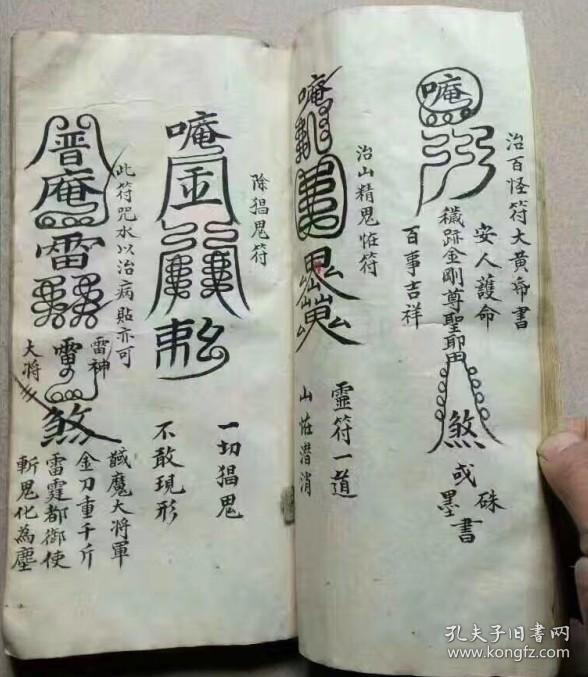 治百怪符大黄帋書
唵
安人護命
穢跡金剛尊聖耶
煞
百事吉祥
或
硃
墨書
治山精鬼恠符
唵
靈符一道
山恠潛消
除猖鬼符
唵
一切猖鬼
不敢現形
此符咒水以治病貼亦可
普庵
雷
雷神
雷
大将
煞
馘魔大将軍
金刀重千斤
雷霆都御使
斬鬼化為塵
孔夫子旧书网
www.kongfz.com